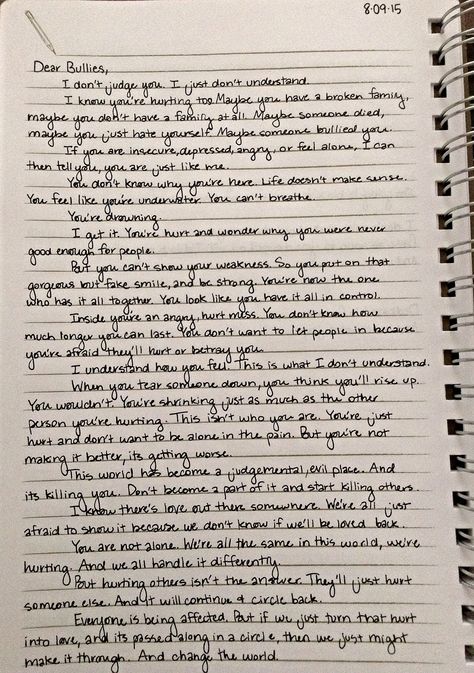 8·09·15
Dear Bullies,
I don't judge you. I just don't understand.
I know you're hurting too. Maybe you have a broken family,
maybe you don't have a family at all. Maybe someone died,
maybe you just hate yourself. Maybe someone bullied you.
If you are insecure, depressed, angry, or feel alone, I can
then tell you, you are just like me.
You don't know why you're here. Life doesn't make sense.
You feel like you're underwater. You can't breathe.
You're drowning.
I get it. You're hurt and wonder why you were never
good enough for people.
But you can't show your weakness. So you put on that
gorgeous but fake smile, and be strong. You're now the one
who has it all together. You look like you have it all in control.
Inside you're an angry, hurt mess. You don't know how
much longer you can last. You don't want to let people in because
you're afraid they'll hurt or betray you.
I understand how you feel. This is what I don't understand.
When you tear someone down, you think you'll rise up.
You wouldn't. You're shrinking just as much as the other
person you're hurting. This isn't who you are. You're just
hurt and don't want to be alone in the pain. But you're not
making it better, its getting worse.
This world has become a judgemental, evil place. And
its killing you. Don't become a part of it and start killing others.
I know there's love out there somwhere. We're all just
afraid to show it because we don't know if we'll be loved back.
You are not alone. We're all the same in this world, we're
hurting. And we all handle it differently.
But hurting others isn't the answer. They'll just hurt
someone else. And it will continue & circle back.
Everyone is being affected. But if we just turn that hurt
into love, and its passed along in a circle, then we just might
make it through. And change the world.